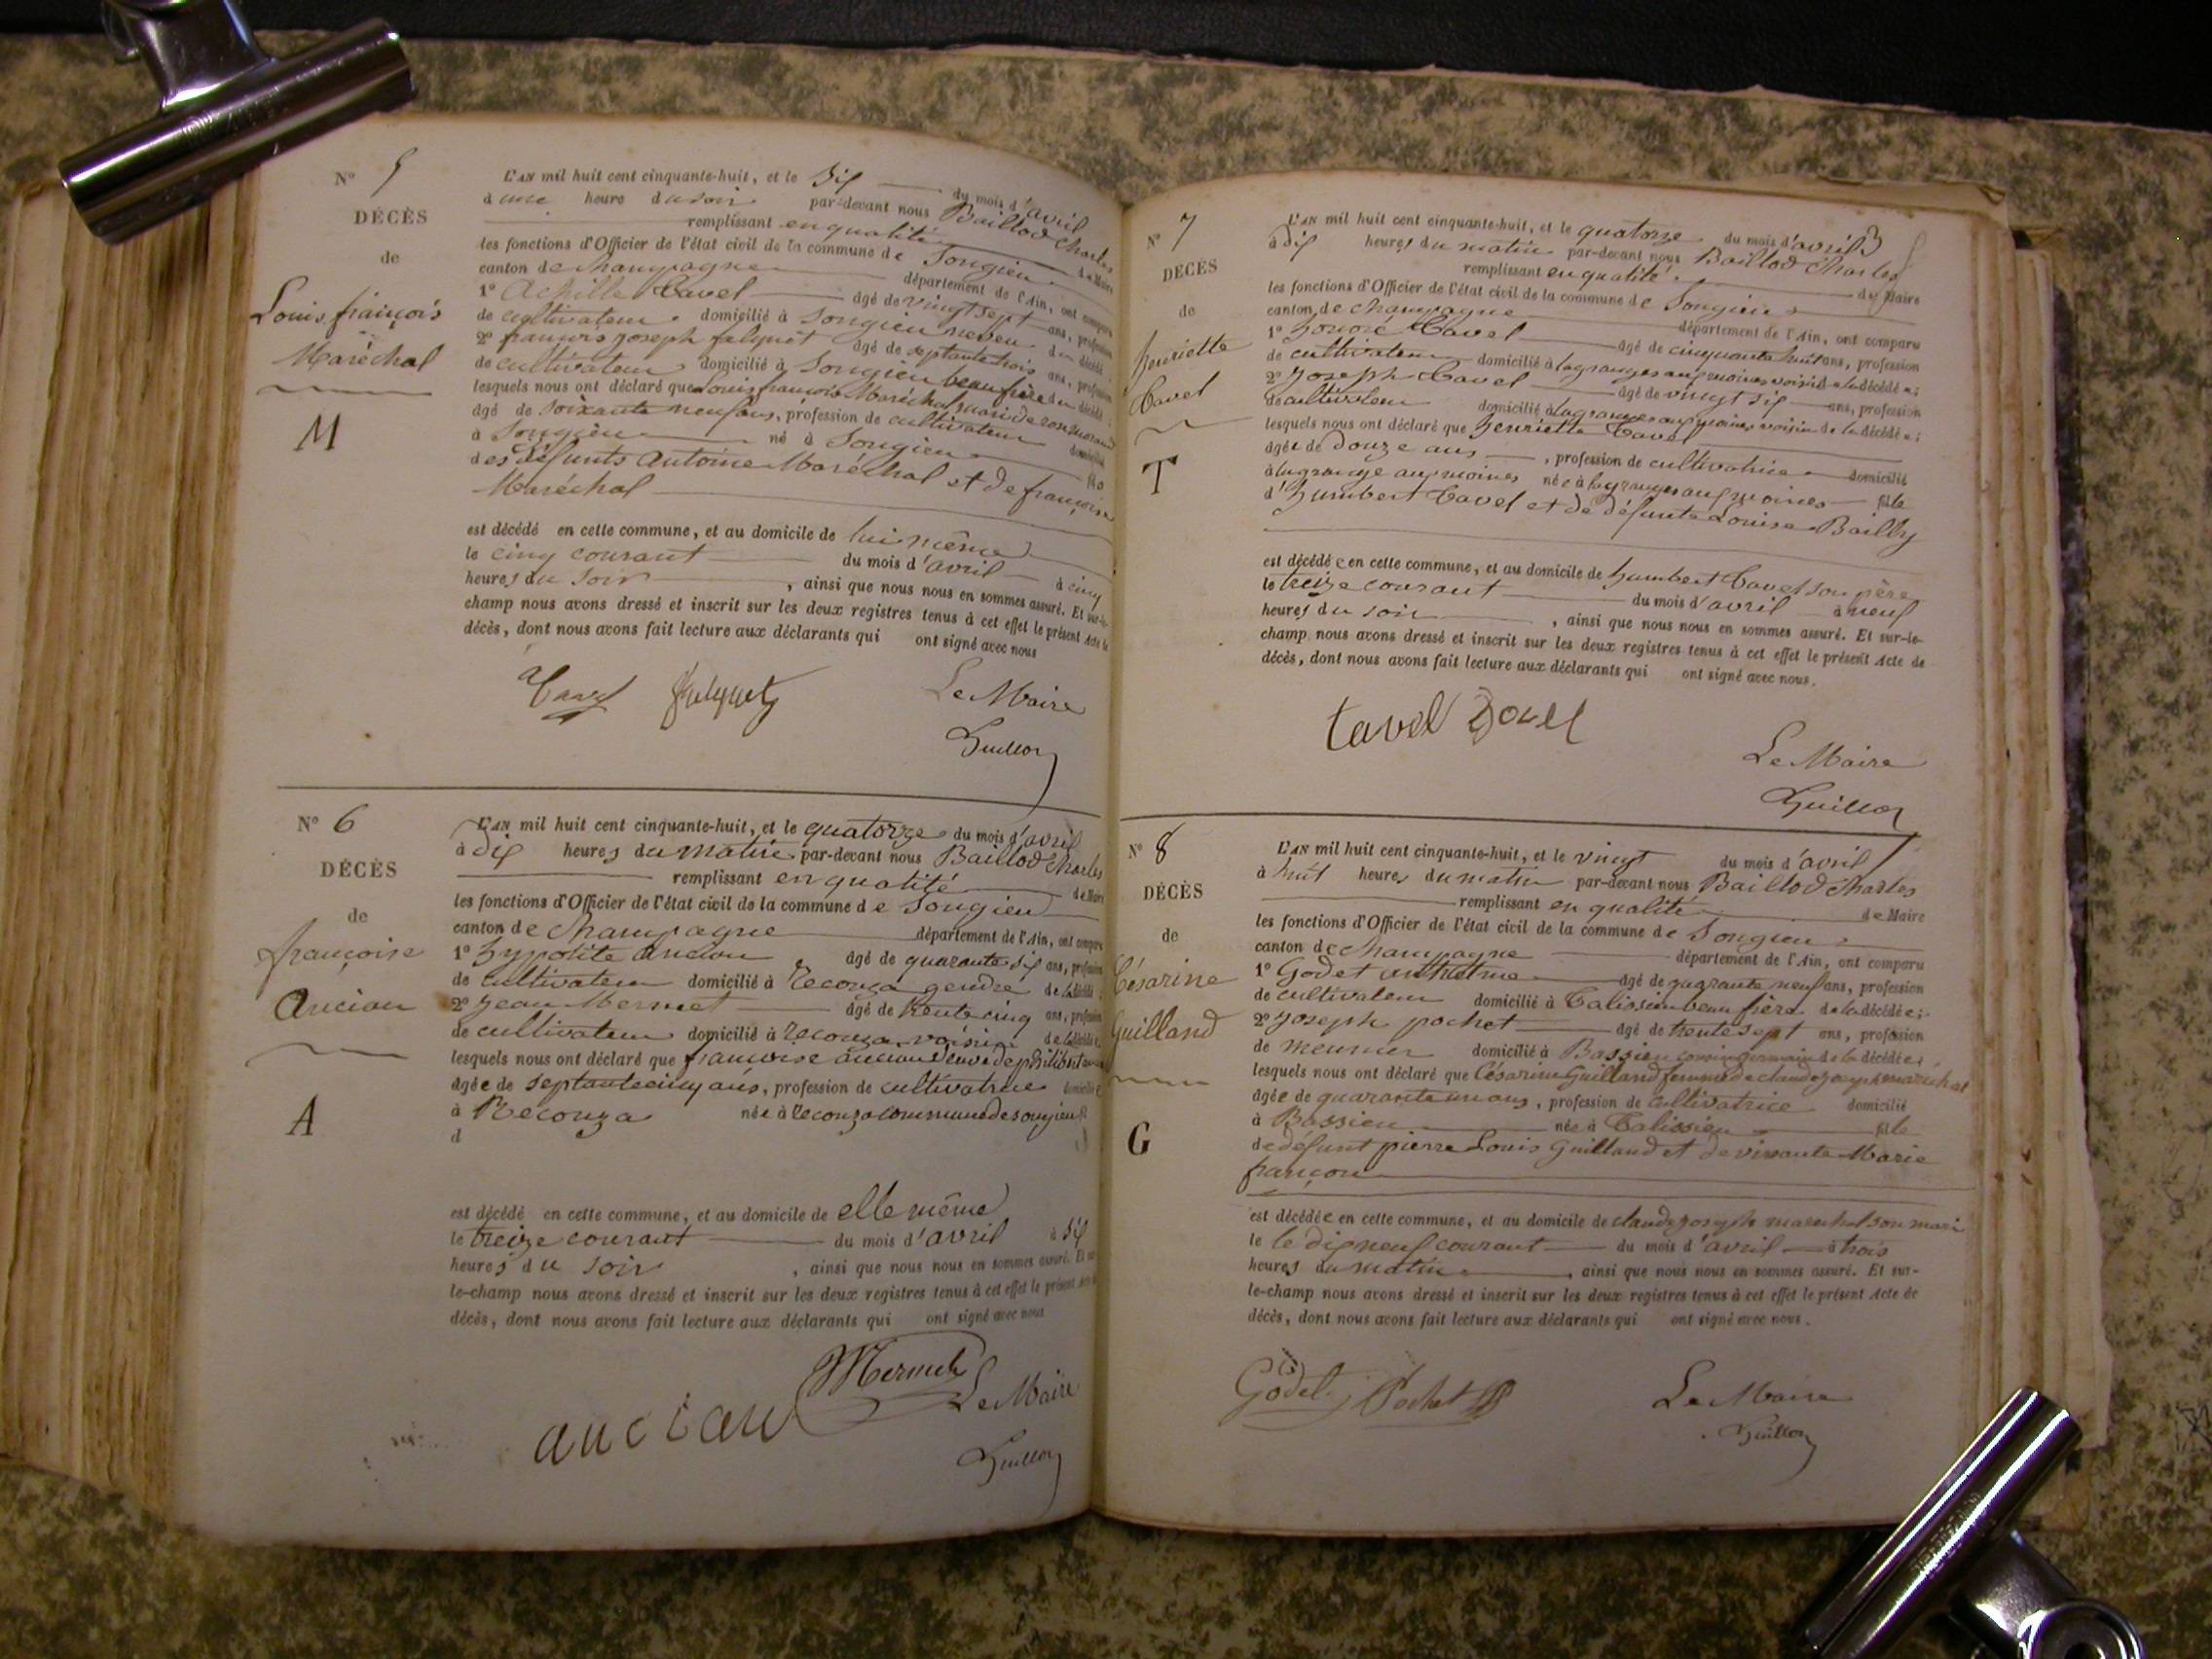 N° 5
DÉCÈS
de
Louis françois
Maréchal
M
L'AN mil huit cent cinquante-huit, et le six du mois d'avril
à une heure du soir par-devant nous Baillod Charles
remplissant en qualité de Maire
les fonctions d'Officier de l'état civil de la commune de Songieu
canton de champagne département de l'Ain, ont comparu
1° Achille Tavel âgé de vingt sept ans, profession
de cultivateur domicilié à Songieu neveu du décédé
2° françois joseph falquet âgé de septante trois ans, profession
de cultivateur domicilié à Songieu beau frère du décédé
lesquels nous ont déclaré que Louis françois Maréchal mari de
âgé de soixante neuf ans, profession de cultivateur domicilié
à Songieu né à Songieu fils
des défunts Antoine Maréchal et de françoise
Maréchal
est décédé en cette commune, et au domicile de lui même
le cinq courant du mois d'avril à cinq
heures du soir , ainsi que nous nous en sommes assuré. Et sur-le-
champ nous avons dressé et inscrit sur les deux registres tenus à cet effet le présent Acte de
décès, dont nous avons fait lecture aux déclarants qui ont signé avec nous
Tavel falquet Le Maire
N° 6
DÉCÈS
de
françoise
Ancian
A
L'AN mil huit cent cinquante-huit, et le quatorze du mois d'avril
à dix heures du matin par-devant nous Baillod Charles
remplissant en qualité de Maire
les fonctions d'Officier de l'état civil de la commune de Songieu
canton de champagne département de l'Ain, ont comparu
1° hyppolite Ancian âgé de quarante six ans, profession
de cultivateur domicilié à reconza gendre de la décédé
2° jean Mermet âgé de trente cinq ans, profession
de cultivateur domicilié à reconza voisin de la décédé
lesquels nous ont déclaré que françoise ancian veuve de philibert
âgée de septante cinq ans, profession de cultivatrice domicilié
à Reconza née à reconza commune de songieu fi
d
est décédé en cette commune, et au domicile de elle même
le treize courant du mois d'avril à six
heures du soir , ainsi que nous nous en sommes assuré. Et sur
le-champ nous avons dressé et inscrit sur les deux registres tenus à cet effet le présent Acte de
décès, dont nous avons fait lecture aux déclarants qui ont signé avec nous
Mermet
ancian Le Maire
N° 7
DÉCÈS
de
henriette
Tavel
T
L'AN mil huit cent cinquante-huit, et le quatorze du mois d'avril
à dix heures du matin par-devant nous Baillod Charles
remplissant en qualité de Maire
les fonctions d'Officier de l'état civil de la commune de Songieu
canton de champagne département de l'Ain, ont comparu
1° honoré Tavel âgé de cinquante huit ans, profession
de cultivateur domicilié à la granges aux moines voisin de la décédée;
2° joseph Tavel âgé de vingt six ans, profession
de cultivateur domicilié à la granges aux moines voisin de la décédée;
lesquels nous ont déclaré que henriette Tavel
âgée de douze ans , profession de cultivatrice domicilié
à la grange aux moines née à la granges aux moines fille
d'humbert Tavel et de défunte Louise Bailly
est décédée en cette commune, et au domicile de humbert Tavel son père
le treize courant du mois d'avril à neuf
heures du soir , ainsi que nous nous en sommes assuré. Et sur-le-
champ nous avons dressé et inscrit sur les deux registres tenus à cet effet le présent Acte de
décès, dont nous avons fait lecture aux déclarants qui ont signé avec nous.
tavel
Le Maire
N° 8
DÉCÈS
de
Césarine
Guilland
G
L'AN mil huit cent cinquante-huit, et le vingt du mois d'avril
à huit heures du matin par-devant nous Baillod Charles
remplissant en qualité de Maire
les fonctions d'Officier de l'état civil de la commune de Songieu
canton de champagne département de l'Ain, ont comparu
1° Godet anthelme âgé de quarante neuf ans, profession
de cultivateur domicilié à Talissieu beau frère de la décédée;
2° joseph pochet âgé de trente sept ans, profession
de meunier domicilié à Bassieu cousin germain de la décédée;
lesquels nous ont déclaré que Césarine Guilland femme de claude joseph maréchal
âgée de quarante un ans, profession de cultivatrice domicilié
à Bassieu née à Talissieu fille
de défunt pierre Louis Guilland et de vivante Marie
françon
est décédée en cette commune, et au domicile de claude joseph marechal son mari
le le dix neuf courant du mois d'avril à trois
heures du matin , ainsi que nous nous en sommes assuré. Et sur-
le-champ nous avons dressé et inscrit sur les deux registres tenus à cet effet le présent Acte de
décès, dont nous avons fait lecture aux déclarants qui ont signé avec nous.
Godet Pochet Le Maire